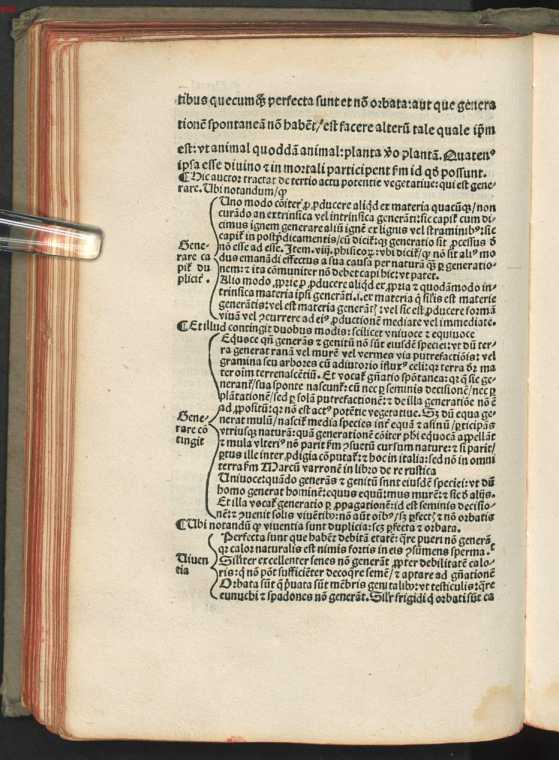 tibus quecumqꝫ perfecta sunt et nõ orbata: aut que genera
tionē spontaneã nõ habēt/est facere alterũ tale quale ip̃m
est: vt animal quoddã animal: planta ꝟo plantã. Quaten⁹
ipsa esse diuino ⁊ in mortali participent ẜm id qđ possunt.
¶ Hic auctor tractat de tertio actu potentie vegetatiue: qui est gene-
rare. Ubi notandum/ꝙ
Uno modo cõiter ꝓ ꝓducere aliqđ ex materia quacũqꝫ/non
curãdo an extrinsica vel intrinsica generãti: sic capiť cum di-
cimus ignem generare aliũ ignē ex lignis vel straminibꝰ: sic
capiť in postp̃dicamentis/cũ diciť: ꝙ generatio sit ꝓcessus đ
nõ esse ad esse. Item .viij. phisicoꝝ: vbi diciť/ꝙ nõ sit aliꝰ mo
dus emanãdi effectus a sua causa per naturã ꝙ̃ ꝑ generatio-
nem: ⁊ ita cõmuniter nõ debet capi hic: vt patet.
Gene-
rare ca
piť du
plicit̃.
Alio modo ꝓprie ꝓ ꝓducere aliqđ ex ꝓpria ⁊ quodãmodo in-
trinsica materia ipsi generãti .i. ex materia q̃ silis est materie
generãtis: vel est materia generãt̃: vel sic est ꝓducere formã
viuã vel ↄcurrere ad eiꝰ ꝓductionē mediate vel immediate.
¶ Et illud contingit duobus modis: scilicet vniuoce ⁊ equiuoce
Equoce qñ generãs ⁊ genitũ nõ sũt eiusdē speciei: vt dũ ter-
ra generat ranã vel murē vel vermes via putrefactiõis: vel
gramina seu arbores cũ adiutorio influxꝰ celi: qꝛ terra đꝛ ma
ter oim terrenascētiũ. Et vocať gñatio spõtanea: qꝛ q̃ sic ge-
neranť/sua sponte nascunť: cũ nec ꝑ seminis decisionē/nec ꝑ
plãtationē/sed ꝑ solã putrefactionē: ⁊ de illa generatiõe nõ ē
ad ꝓpositũ: qꝛ nõ est actꝰ potētie vegetatiue. Sꝫ dũ equa ge-
nerat mulũ/nasciť media species int̃ equã ⁊ asinũ/ꝑticipãs
vtriusqꝫ naturã: quã generationē cõiter phi equocã appellãt
⁊ mula vlteriꝰ nõ parit ẜm ↄsuetũ cursum nature: ⁊ si parit/
ꝑtus ille inter ꝓdigia cõputať: ⁊ hoc in italia: sed nõ in omni
terra ẜm Marcũ varronē in libro de re rustica
Gene-
rare cõ
tingit
Uniuoce: quãdo generãs ⁊ genitũ sunt eiusdē speciei: vt dũ
homo generat hominē: equus equũ: mus murē: ⁊ sic đ alijs.
Et illa vocať generatio ꝑ ꝓpagationē: id est seminis decisio-
nē: ⁊ ↄuenit solis viuētibꝰ: nõ aũt oĩbꝰ/sꝫ ꝑfect̃: ⁊ nõ orbatis
¶ Ubi notandũ ꝙ viuentia sunt duplicia: scꝫ ꝑfecta ⁊ orbata.
Perfecta sunt que habēt debitã etatē: q̃re pueri nõ generãt
qꝛ calor naturalis est nimis fortis in eis ↄsumens sperma.
Siliter excellenter senes nõ generãt ꝓpter debilitatē calo-
ris: q̃ nõ põt sufficiēter decoq̃re semē/⁊ aptare ad gñationē
Uiuen
tia
Orbata sũt q̃ p̃uata sũt mēbris genitalibꝰ: vt testiculis: q̃re
eunuchi ⁊ spadones nõ generãt. Silr̃ frigidi q̃ orbati sũt ca